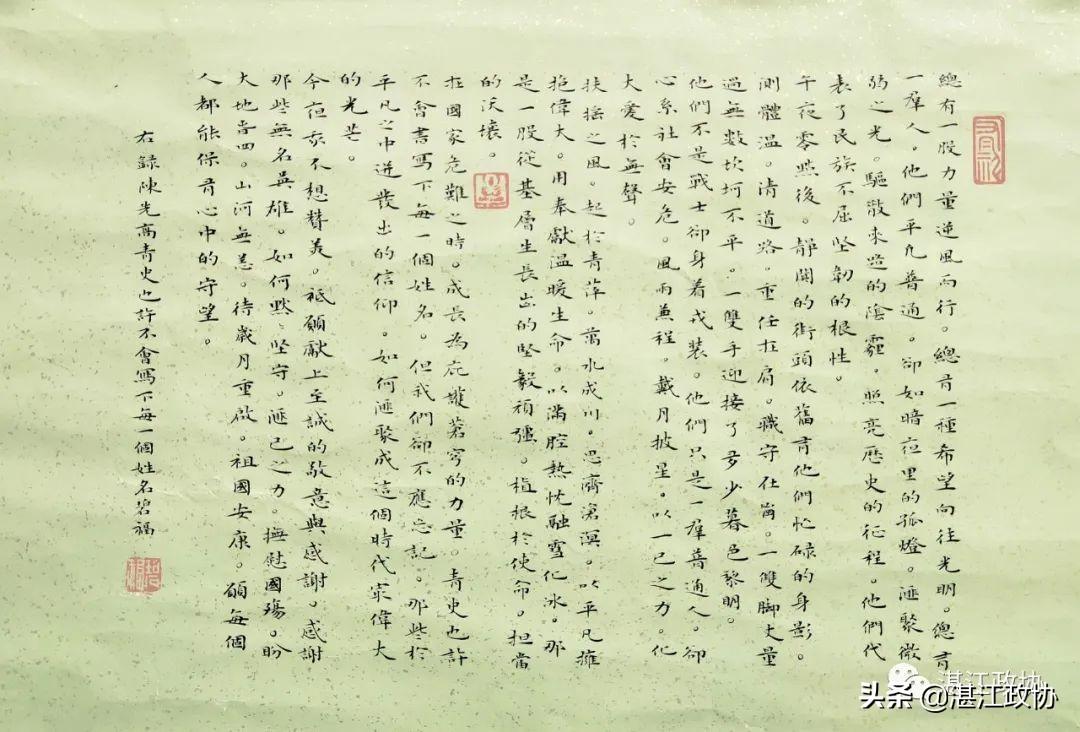 總有一股力量逆風而行。總有一種希望向往光明。總有
一羣人。他們平凡普通。卻如暗夜里的孤燈。匯聚微
弱之光。驅散來路的陰霾。照亮歷史的征程。他們代
表了民族不屈坚韌的根性。
午夜零點後。靜闃的街頭依舊有他們忙碌的身影。
測體温。清道路。重任在肩。職守在崗。一雙脚丈量
過無數坎坷不平。一雙手迎接了多少暮色黎明。
他們不是戰士卻身着戎装。他們只是一羣普通人。卻
心系社會安危。風雨兼程。戴月披星。以一己之力。化
大愛於無聲。
扶摇之風。起於青萍。萬水成川。思濟滄溟。以平凡擁
抱偉大。用奉獻温暖生命。以滿腔熱忱融雪化冰。那
是一股從基層生長出的坚毅頑强。植根於使命。担當
的沃壤。
在國家危難之時。成長為庇護蒼穹的力量。青史也許
不會書寫下每一個姓名。但我們卻不應忘記。那些於
平凡之中迸發出的信仰。如何匯聚成這個時代寂偉大
的光芒。
今夜我不想贊美。祗願獻上至誠的敬意與感謝。感謝
那些無名英雄。如何默〻坚守。匯己之力。撫慰國殤。盼
大地春回。山河無恙。待歲月重啟。祖國安康。願每個
人都能保有心中的守望。
右錄陳光高青史也許不會寫下每一個姓名碧福
湛江政协
头条 @湛江政协